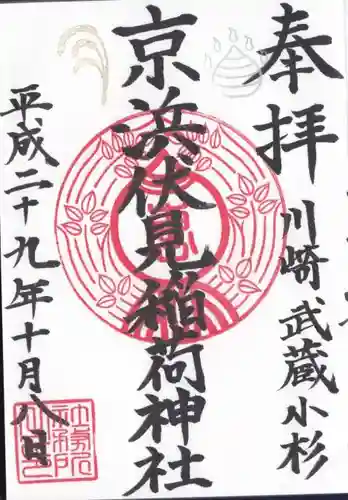 奉拝
川崎 武蔵小杉
京浜伏見稲荷神社
平成二十九年十月八日